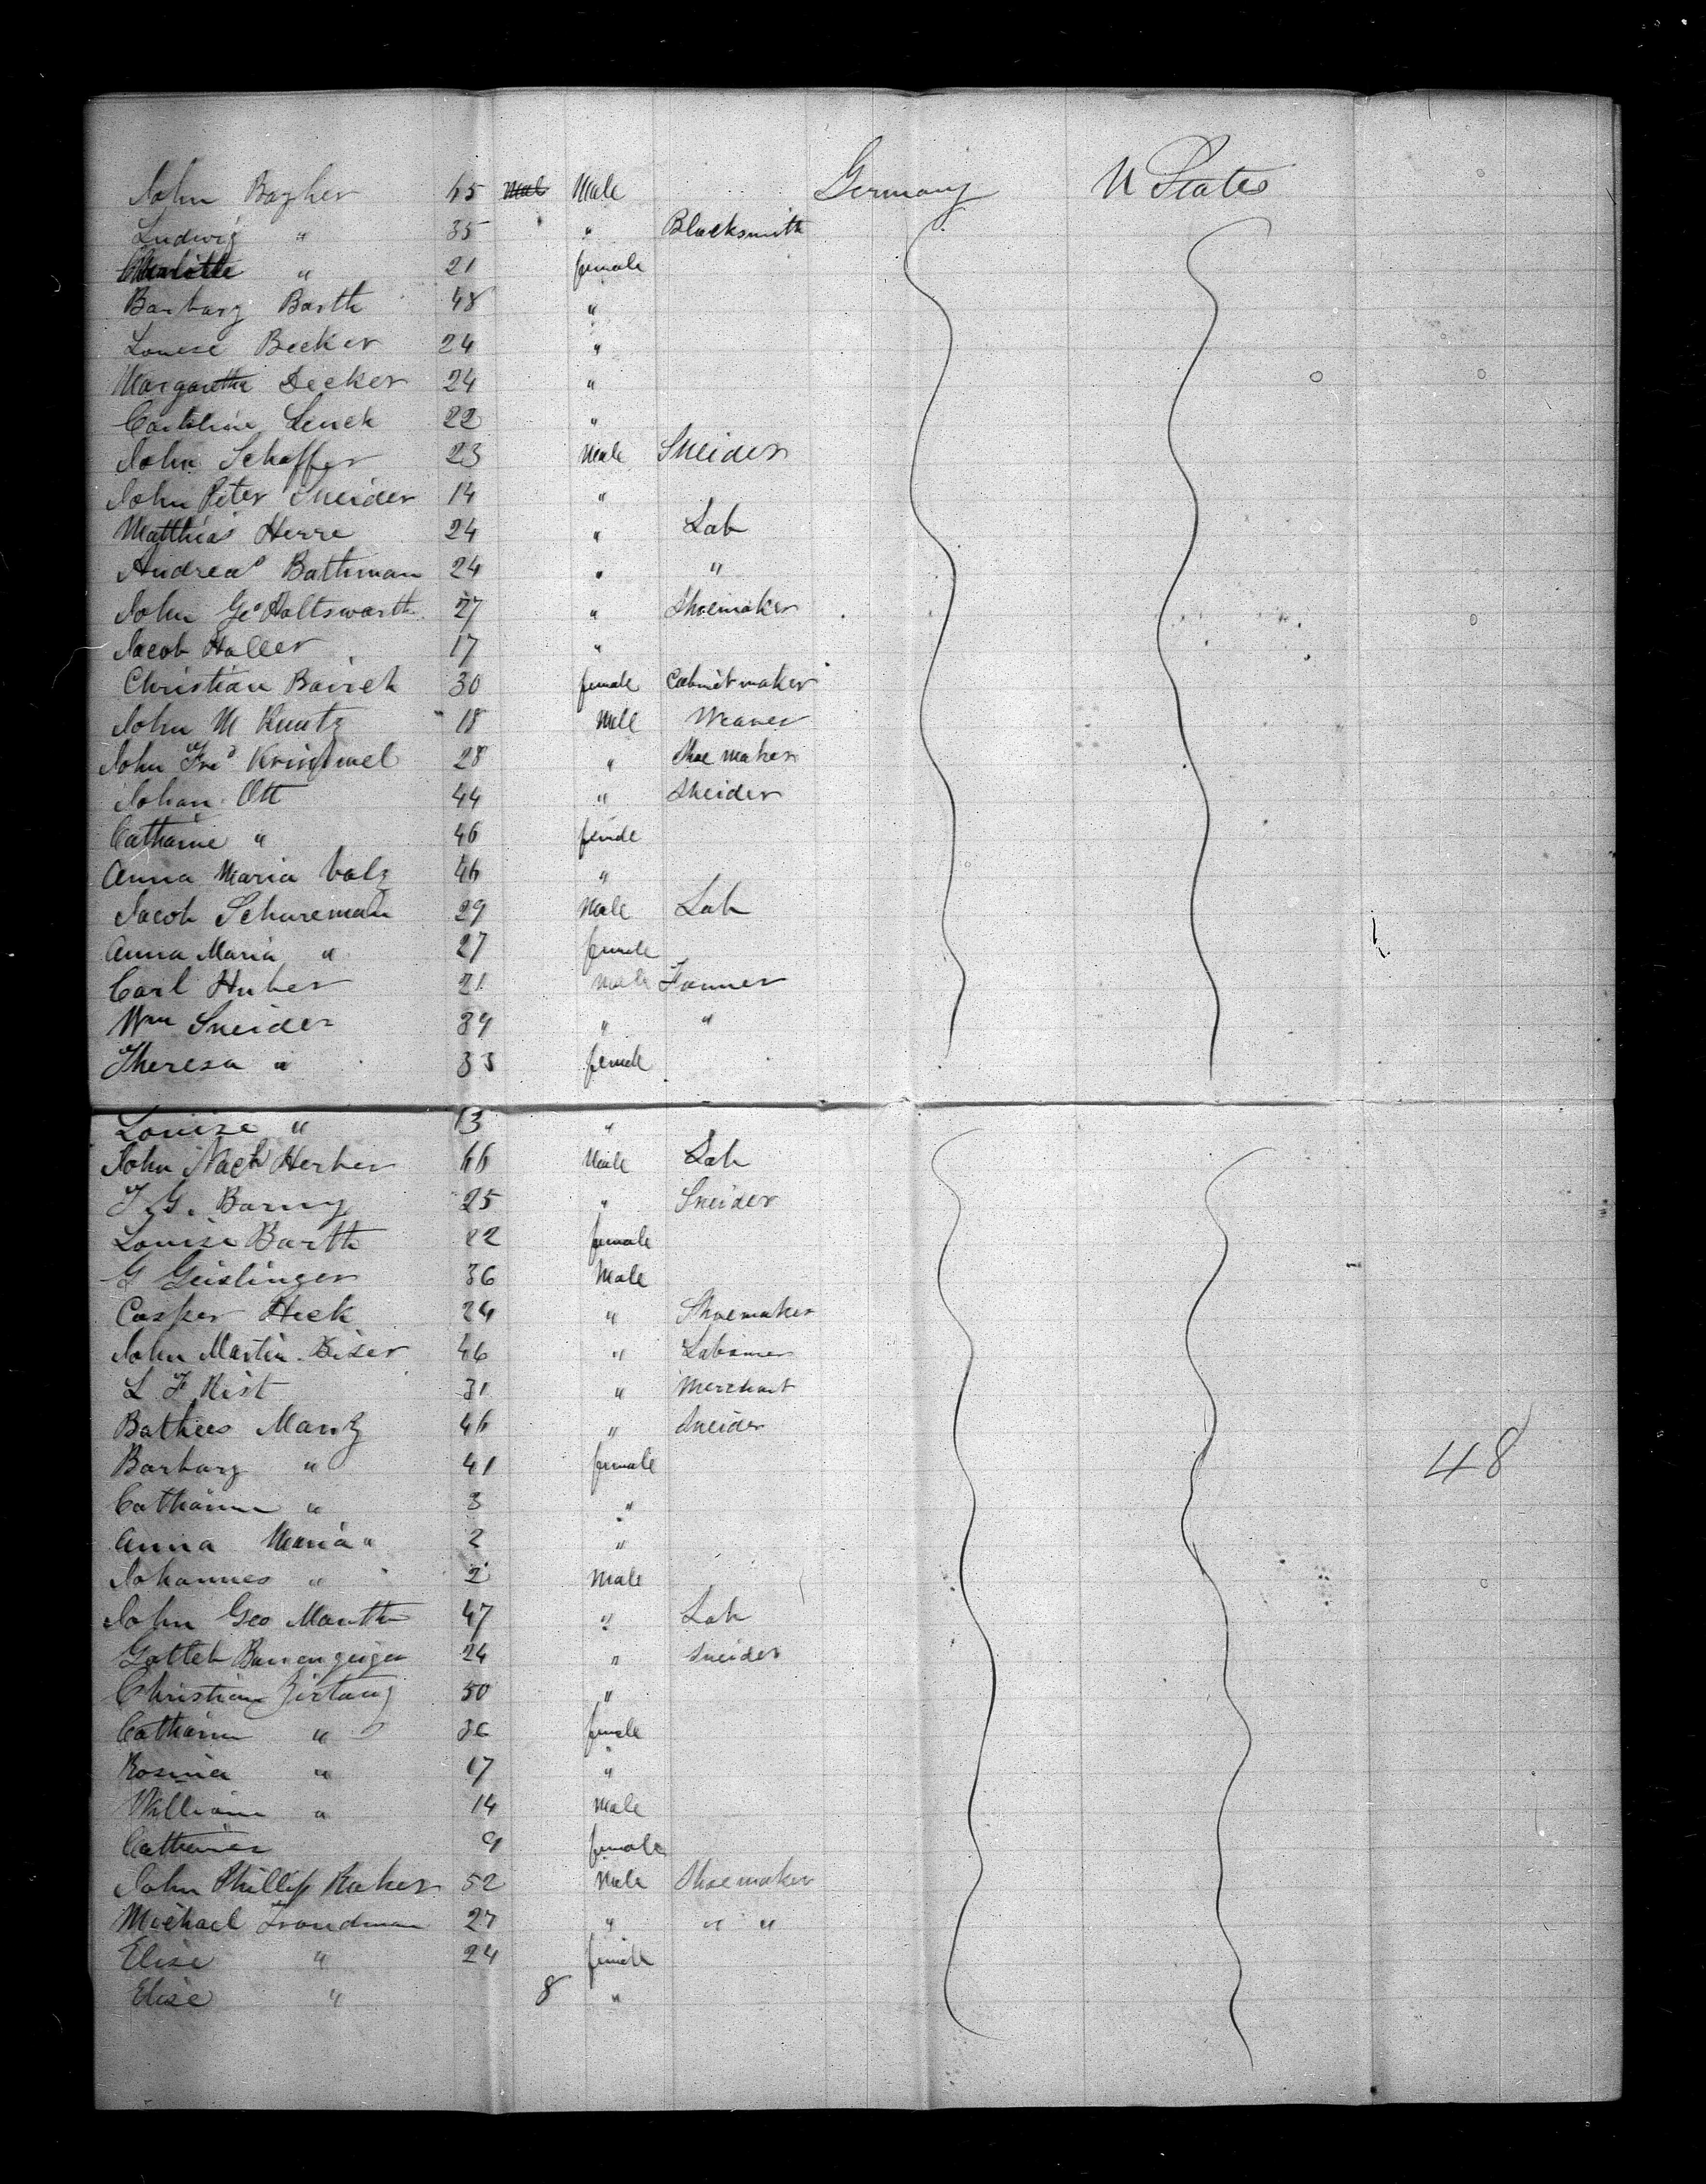 John Bagher 45 Male Male Germany U States
Ludwig " 35 " Blacksmith
Charlotte " 21 female
Barbary Barth 48 "
Louise Becker 24 "
Margaretha Decker 24 "
Caroline Lenck 22 "
John Schaffer 23 Male Sneider
John Peter Sneider 14 "
Matthias Herre 24 " Lab
Andreas Bathman 24 " "
John Geo Holtswarth 27 " Shoemaker
Jacob Haller 17 "
Christian Bairch 30 female Cabinetmaker
John M Kuntz 18 Male Weaver
John Frd Krimmel 28 " Shoe maker
Johan Ott 44 " Sneider
Catharine " 46 female
Anna Maria Valz 46 "
Jacob Schureman 29 Male Lab
Anna Maria " 27 female
Carl Huber 21 Male Farmer
Wm Sneider 39 " "
Theresa " 33 female
Louise " 13 "
John Herber 46 Male Lab
25 " Sneider
Louise Barth 22 female
G Geislinger 36 Male
Casper Heck 24 " Shoemaker
John Martin 46 " Laborer
L F Rist 31 " Merchant
Mantz 46 " Sneider
Barbary " 41 female
Catharine " 3 "
Anna Maria " 2 "
Johannes " 2 Male
John Geo Manth 47 " Lab
Gotleb 24 " Sneider
Christian 50 "
Catharine " 36 female
Rosina " 17 "
William " 14 Male
Catharine 9 female
John Phillip Raker 52 Male Shoemaker
Michael Trandman 27 " " "
Elise " 24 female
Elise " 8 "
48